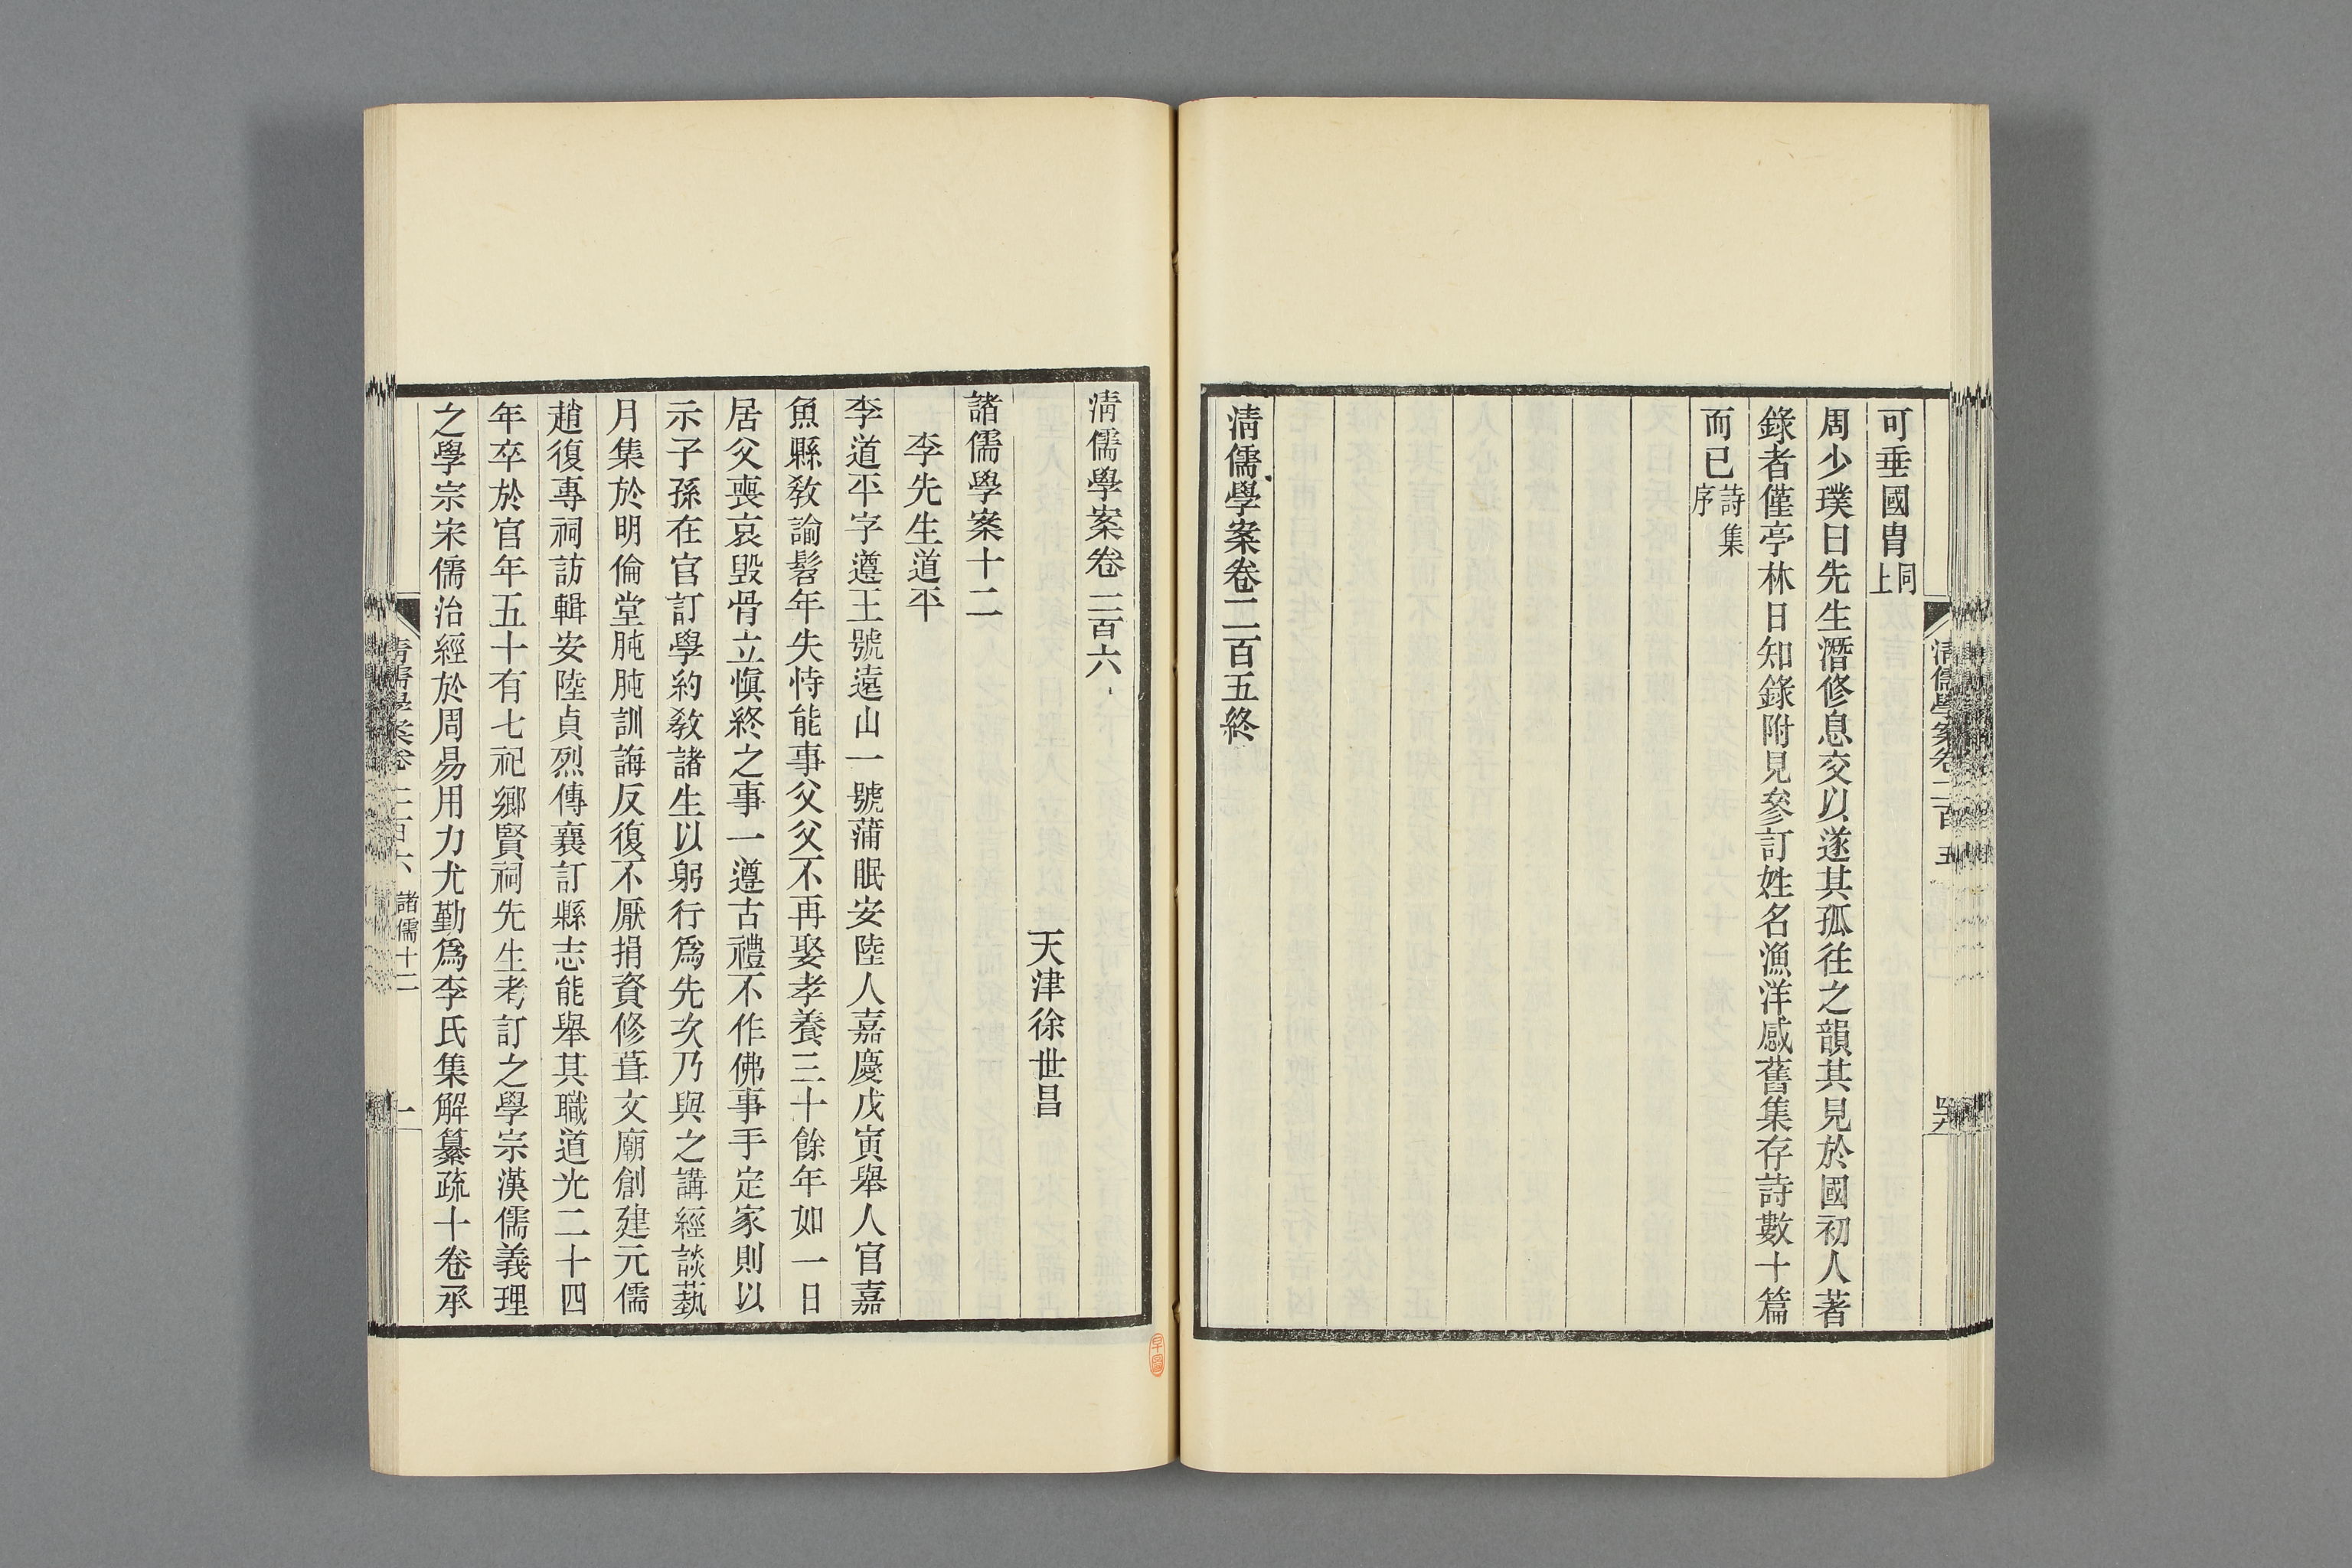 可垂國胄同上
周少璞曰先生潛修息交以遂其孤往之韻其見於國初人著
錄者僅亭林日知錄附見參訂姓名漁洋感舊集存詩數十篇
而已詩集序
清儒學案卷二百五終
清儒學案卷二百五
清儒學案卷二百六
天津徐世昌
諸儒學案十二
李先生道平
李道平字遵王號遠山一號蒲眠安陸人嘉慶戊寅舉人官嘉
魚縣敎諭髫年失恃能事父父不再娶孝養三十餘年如一日
居父喪哀毀骨立愼終之事一遵古禮不作佛事手定家則以
示子孫在官訂學約敎諸生以躬行爲先次乃與之講經談藝
月集於明倫堂肫肫訓誨反復不厭捐資修葺文廟創建元儒
趙復專祠訪輯安陸貞烈傳襄訂縣志能舉其職道光二十四
年卒於官年五十有七祀鄉賢祠先生考訂之學宗漢儒義理
之學宗宋儒治經於周易用力尤勤爲李氏集解纂疏十卷承
清儒學案卷二百六 諸儒十二
一